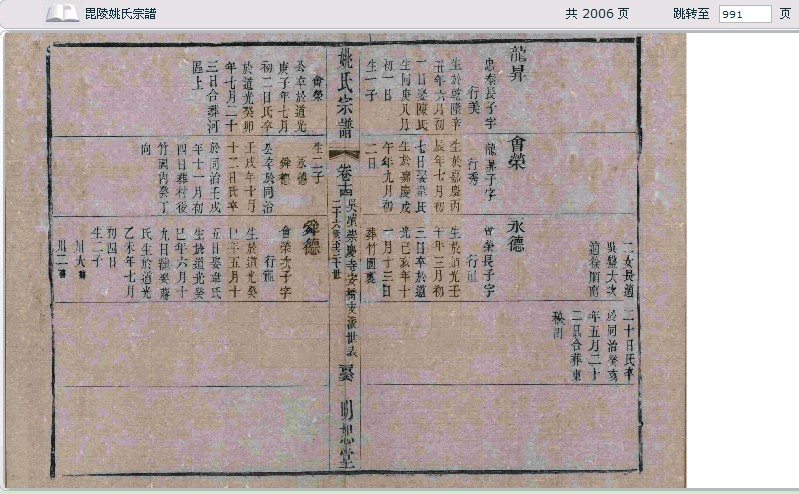 毘陵姚氏宗譜
共 2006 页
跳转至 991 页
二女長適
吳盤大次
適徐
二十日氏卒
於同治癸亥
年五月二十
二日合葬東
龍昇
忠泰長子字
行美
生於乾隆辛
丑年六月初
一日娶陳氏
生同庚八月
初一日
生一子
會榮
龍昇子字
行秀
生於嘉慶丙
辰年七月初
七日娶韋氏
生於嘉慶戊
午年九月初
二日
永德
會榮長子字
行
生於道光壬
午年三月初
三日卒於道
光己亥年十
一月十三日
葬竹園裏
姚氏宗譜
卷十四
吳瀆崇慶寺安橋支派世表
二十六世至三十世
明恕堂
會榮
公卒於道光
庚子年七月
初一日氏卒
於道光癸卯
年七月二十
三日合葬河
區上
生二子
永德
舜德
公卒於同治
壬戌年十月
十二日氏卒
於同治壬戌
年十一月初
四日葬村後
竹園內癸丁
向
舜德
會榮次子字
行
生於道光癸
巳年五月十
五日娶韋氏
生於道光癸
巳年六月十
九日繼娶蔣
氏生於道光
乙未年七月
初四日
生二子
川大
川二